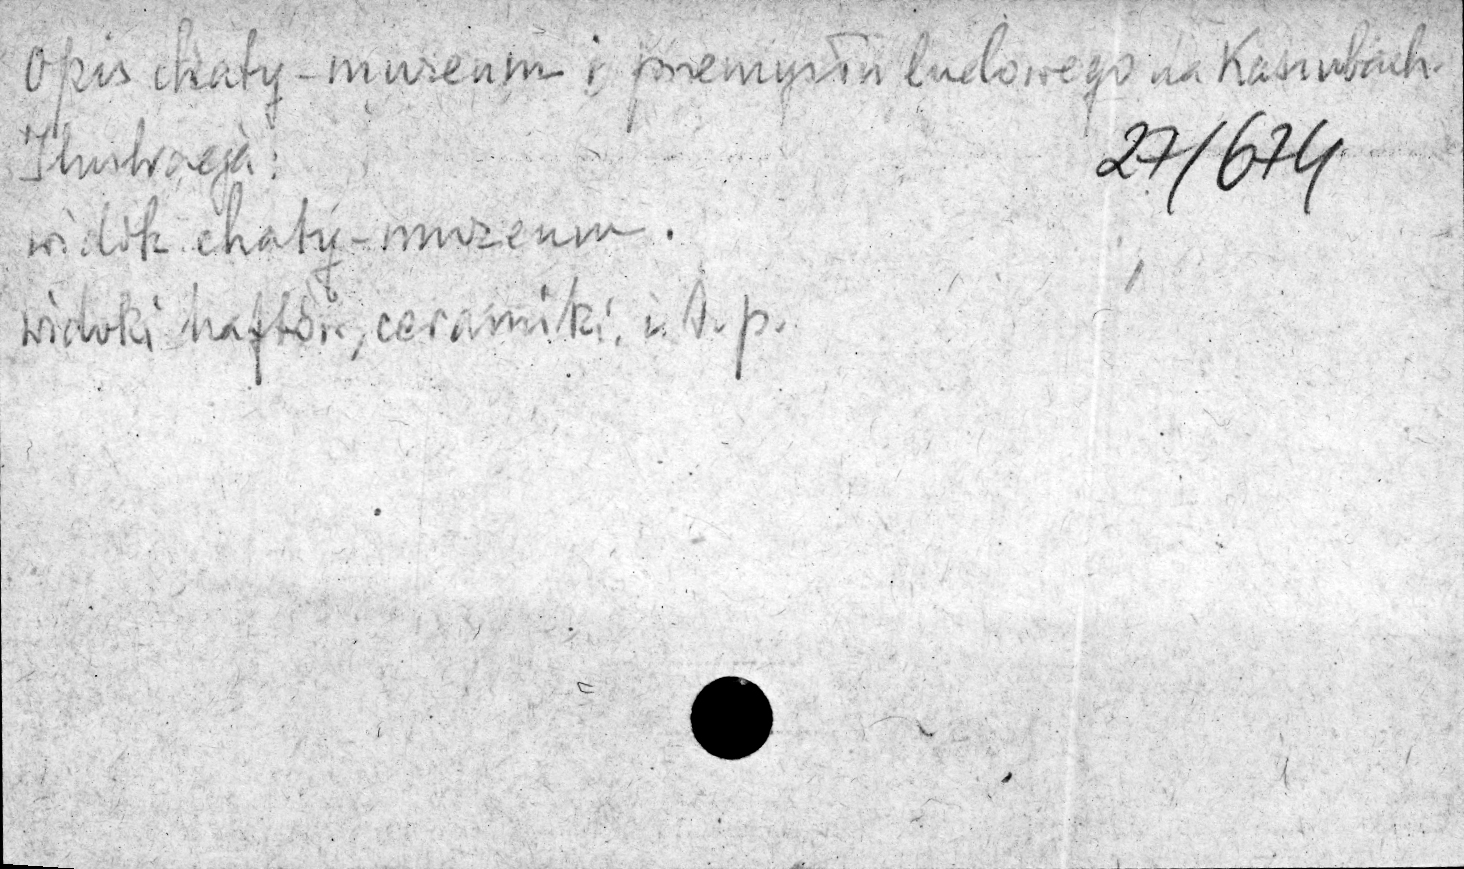 Opis chaty-muzeum i przemysłu ludowego na Kaszubach.
Ilustracja:
27/674
widok chaty-muzeum.
widoki haftów, ceramiki, i t. p.